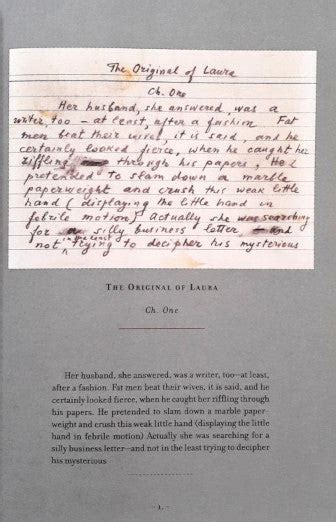 The Original of Laura
Ch. One
Her husband, she answered, was a
writer too – at least, after a fashion. Fat
men beat their wives, it is said, and he
certainly looked fierce, when he caught her
riffling through his papers. He
pretended to slam down a marble
paperweight and crush this weak little
hand (displaying the little hand in
febrile motion) Actually she was searching
for a silly business letter – and
not in the least trying to decipher his mysterious
THE ORIGINAL OF LAURA
Ch. One
Her husband, she answered, was a writer, too—at least,
after a fashion. Fat men beat their wives, it is said, and he
certainly looked fierce, when he caught her riffling through
his papers. He pretended to slam down a marble paper-
weight and crush this weak little hand (displaying the little
hand in febrile motion) Actually she was searching for a
silly business letter—and not in the least trying to decipher
his mysterious
- 1 -